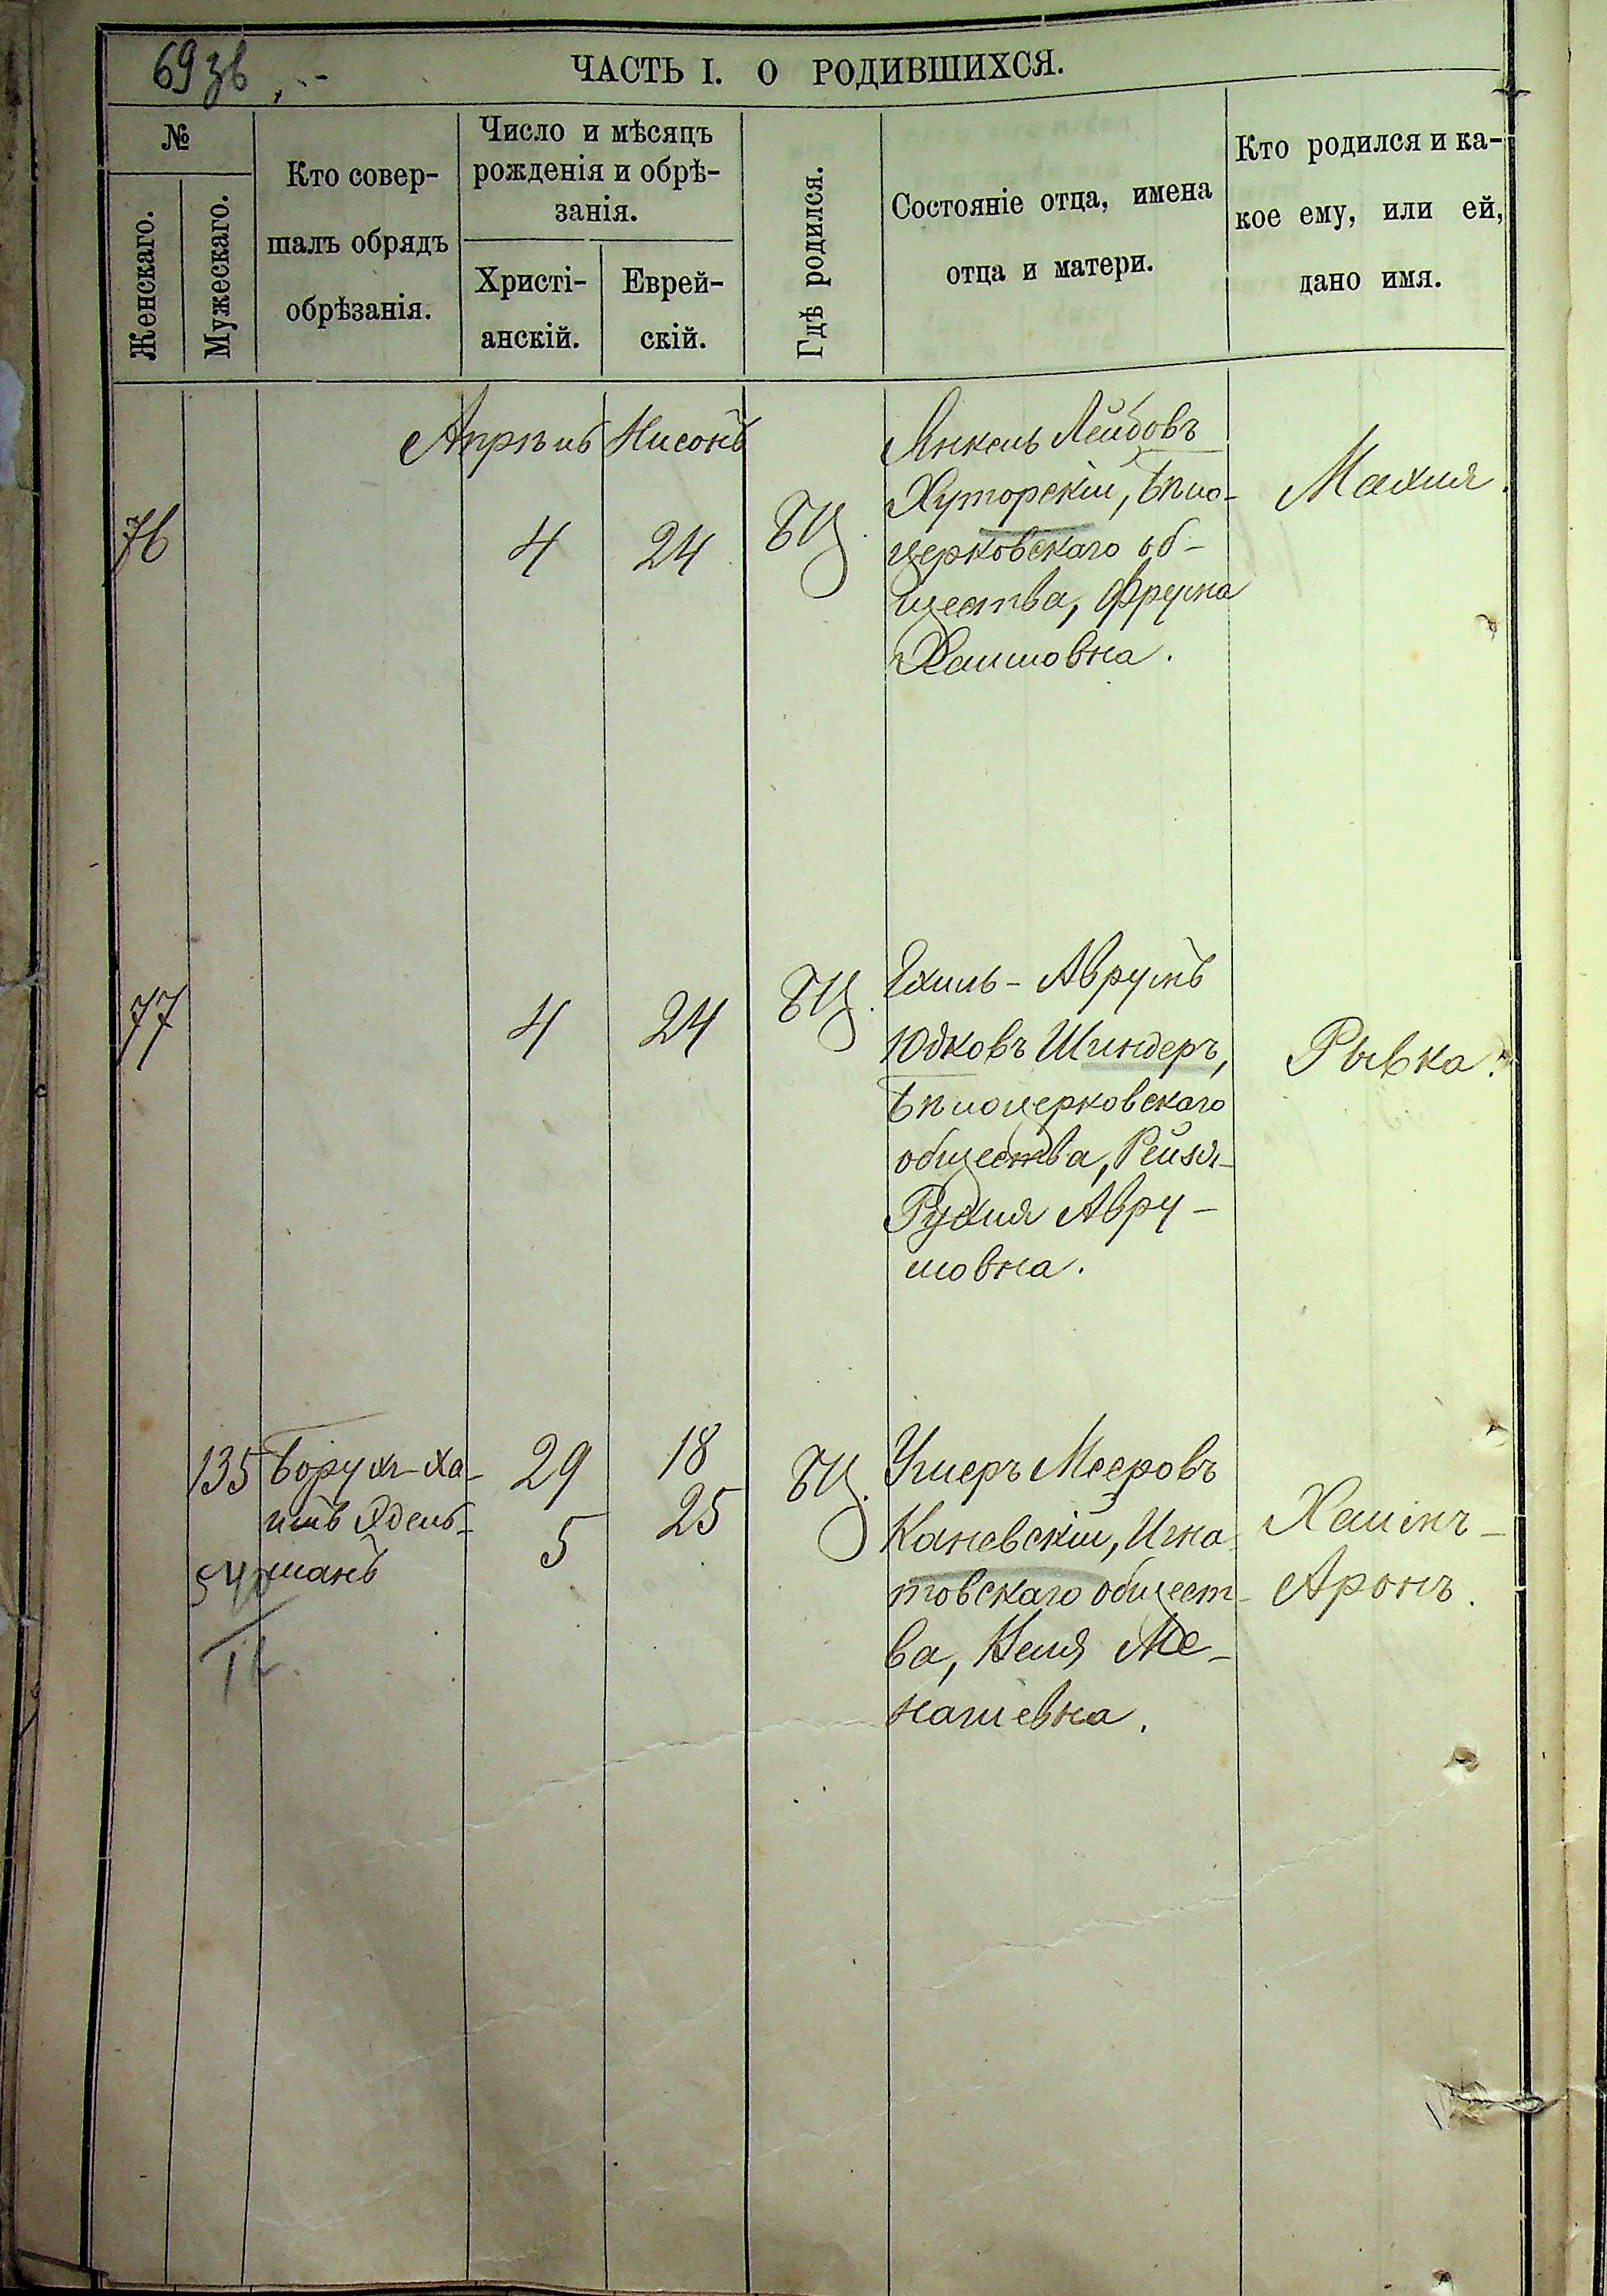 69 зв.
ЧАСТЬ I. О РОДИВШИХСЯ.
№
Женскаго.
Мужескаго.
Кто совер-
шалъ обрядъ
обрѣзанія.
Число и мѣсяцъ
рожденія и обрѣ-
занія.
Христі-
анскій.
Еврей-
скій.
Гдѣ родился.
Состояніе отца, имена
отца и матери.
Кто родился и ка-
кое ему, или ей,
дано имя.
Апрѣль Нисонъ
76
4
24
БЦ.
Янкель Лейбовъ
Хуторскій, Бѣло-
церковскаго об-
щества, Фрума
Хаимовна.
Махля.
77
4
24
БЦ.
Ехиль-Аврумъ
Юдковъ Шиндеръ,
Бѣлоцерковскаго
общества, Рейзя-
Рухля Авру-
мовна.
Рывка.
135
54
Борухъ-Ха-
имъ Эдель-
манъ
29
5
18
25
БЦ.
Ушеръ Мееровъ
Каневскій, Игна-
товскаго общест-
ва, Неня Ме-
нашевна.
Хаимъ-
Аронъ.